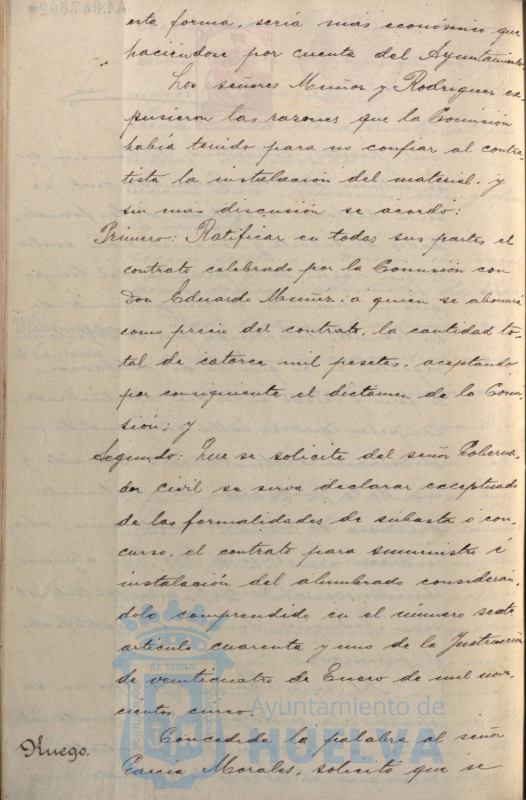 esta forma, sería mas económico que
haciéndose por cuenta del Ayuntamiento.
Los señores Muñoz y Rodriguez ex-
pusieron las razones que la Comisión
había tenido para no confiar al contra-
tista la instalación del material, y
sin mas discusión se acordó:
Primero: Ratificar en todas sus partes el
contrato celebrado por la Comisión con
Don Eduardo Muñiz; á quien se abonará
como precio del contrato, la cantidad to-
tal de catorce mil pesetas, aceptando
por consiguiente el dictamen de la Comi-
sión; y
Segundo: Que se solicite del señor Goberna-
dor civil se sirva declarar exceptuado
de las formalidades de subasta ó con-
curso, el contrato para suministro é
instalación del alumbrado consideran-
dolo comprendido en el número sexto
artículo cuarenta y uno de la Instrucción
de veinticuatro de Enero de mil nove-
cientos cinco.
Ruego.
Concedida la palabra al señor
Garcia Morales, solicitó que se
Ayuntamiento de
HUELVA